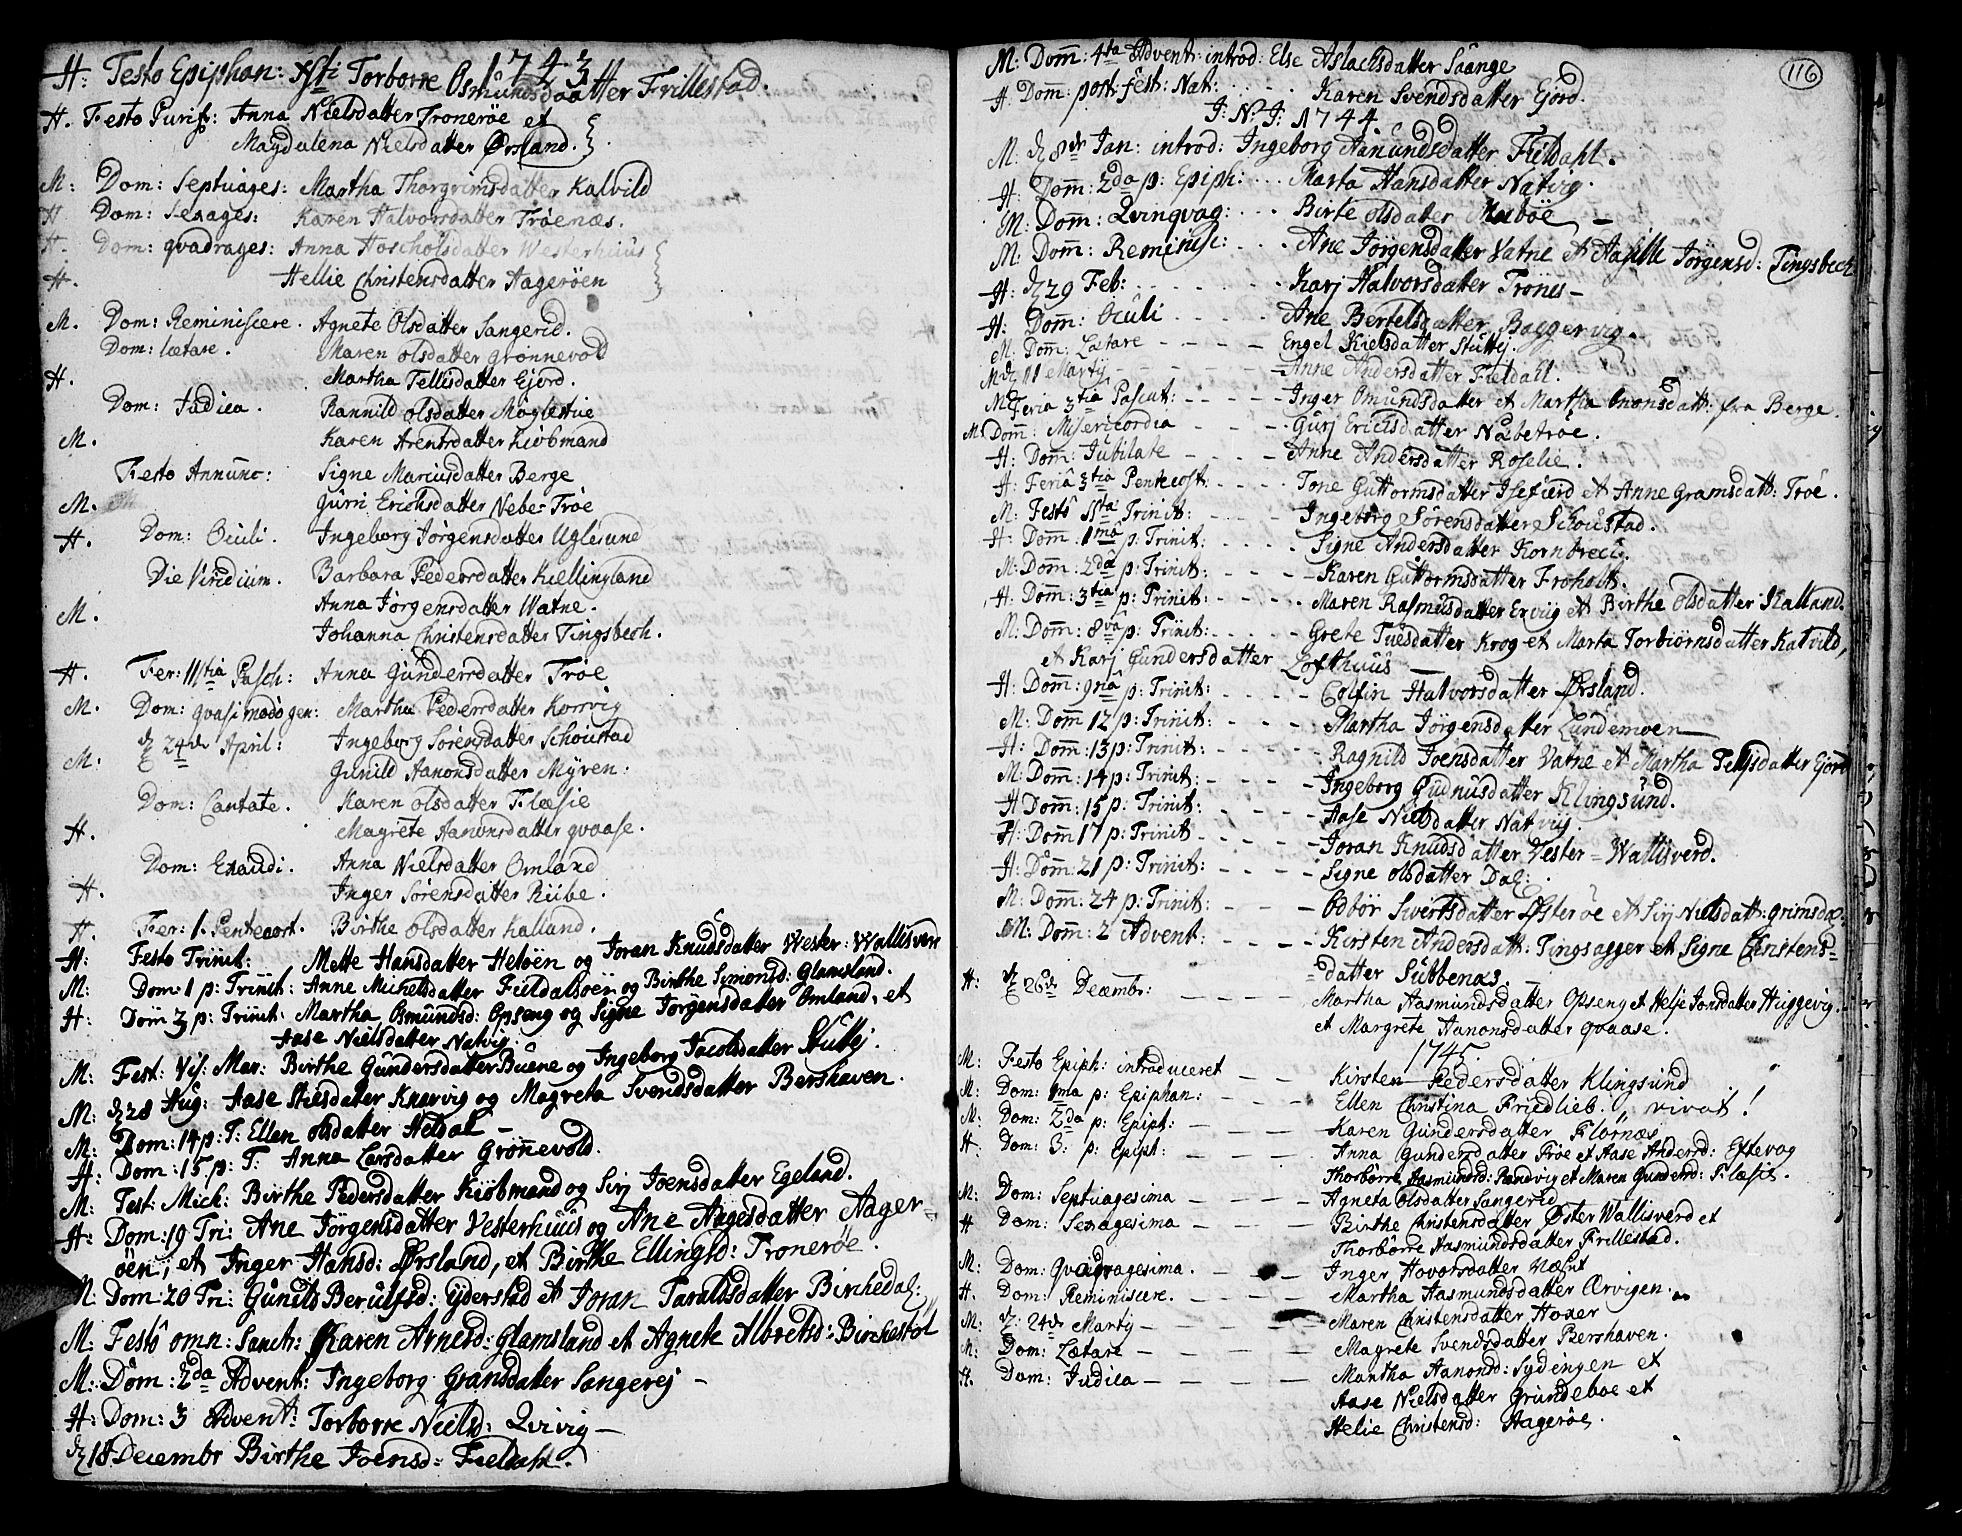 1743
H: Festo Epiphan: Xsti Torborre Osmundsdaatter Frillestad.
H. Festo Purif: Anna Nielsdatter Tronerøe et
Magdalena Nielsdatter Ørsland.
M: Dom: Septuages: Martha Thorgrimsdatter Kalvild
H Dom: Sexages: Karen Halvorsdatter Trøenæs.
H. Dom: qvadrages: Anna Hoscholsdatter Westerhuus
H. Hellie Christensdatter Aagerøen
M. Dom: Reminiscere. Agnete Olsdatter Sangereid.
Dom: lætare. Maren olsdatter Grønnevold
H. Martha Tellisdatter Ejord.
Dom: Judica. Rannild olsdatter Møglestue
M. Karen Arentsdatter Kiøbmand
Festo Annunc: Signe Mariusdatter Berge
M. Gurri Erichsdatter Nebe-Trøe
H. Dom: Oculi. Ingeborg Jørgensdatter Uglesune
Die Viridium. Barbara Pedersdatter Kiellingland
M. Anna Jørgensdatter Watne.
Johanna Christensdatter Tingsbech.
H. Fer: IIItia Pasch: Anna Gundersdatter Trøe
M. Dom: qvasimodogen: Martha Pedersdatter Korvig
d 24de April: Ingeborg Sørensdatter Schoustad
M. Gunild Aanonsdatter Myren:
Dom: Cantate. Karen olsdatter Flæsie
H. Magrete Aanonsdatter qvaase.
Dom: Exaudi. Anna Nielsdatter Omland
H. Inger Sørensdatter Riibe.
H. Fer: 1. Pentecost. Birthe olsdatter Kalland.
H: Festo Trinit: Mette Hansdatter Heløen og Joran Knudsdatter Wester: Wallisverd
M: Dom: 1 p: Trinit: Anne Michelsdatter Fieldalsöen og Birthe Simonsd: Glamsland.
H: Dom 3 p: Trinit: Martha Osmundsd: Opseng og Signe Jørgensdatter Omland, et
Aase Nielsdatter Natvig.
M: Fest: Vis: Mar: Birthe Gundersdatter Buene og Ingeborg Jacobsdatter Stutlej.
M: d 28 Aug: Aase Nielsdatter Knarvig og Magreta Svendsdatter Bershaven.
M: Dom: 14 p: T: Ellen olsdatter Heldal –
H: Dom: 15 p: T: Anna Larsdatter Grønnevold.
M: Fest: Mich: Birthe Pedersdatter Kiøbmand og Sirj Joensdatter Egeland.
H: Dom: 19 Tri: Ane Jørgensdatter Vesterhuus og Ane Aagesdatter Aager=
öen, et Inger Hansd: Ørsland, et Birthe Ellingsd: Tronerøe.
M. Dom: 20 Tri: Gunild Berulfsd: Yderstad et Joran Taraldsdatter Birchedal:
M: Festô omn: Sanct: Karen Arnesd: Glamsland et Agnete Albretsd: Birchestol
M: Dom: 2da Advent: Ingeborg Gransdatter Sangerej –
H: Dom: 3 Advent: Torborre Nielsd: Qvivig –
d 18 Decembr Birthe Joensd: Fieldahl.
116
M: Dom: 4ta Advent: introd: Else Aslachsdatter Saange
H: Dom: post fest: Nat: Karen Svendsdatter Ejord.
J: N: J: 1744.
M: d 8de Jan: introd: Ingeborg Aanundsdatter Fieldahl.
H: Dom: 2da p: Epiph: Marta Hansdatter Natvig.
M: Dom: Qvinqvag: Birte olsdatter Mæbøe –
M: Dom: Reminisc: Ane Jörgensdatter Vatne et Aasille Jørgensd: Tingsbech
H: d 29 Feb: Karj Halvorsdatter Trones –
H: Dom: Oculi Ane Bertelsdatter Baggervig.
M: Dom: Lætare Engel Kielsdatter Stutlej.
M: d 11 Martij Anne Andersdatter Fieldahl.
M: Feria 3tia Pascat: Inger Omundsdatter et Martha Ononsdatt: fra Berge.
M: Dom: Misericordia Gurj Erichsdatter Nabetrøe.
H: Dom: Jubilate Anne Andersdatter Roselie.
H: Feriâ 3tia Pentecost: Tone Guttormsdatter Isefierd et Anne Gramsdatt: Trøe.
M: Festô Ssta Trinit: Ingeborg Sørensdatter Schoustad.
H: Dom: 1mâ p: Trinit: Signe Andersdatter Kornbrech.
M: Dom: 2dâ p: Trinit: Karen Guttormsdatter Froholt.
H: Dom: 3tia p: Trinit: Maren Rasmusdatter Ervig et Birthe olsdatter Kalland.
M: Dom: 8vâ p: Trinit: Grete Tuesdatter Krog et Marta Torbiörnsdatter Katvild,
et Karj Gundersdatter Lofthuus –
H: Dom: 9nâ p: Trinit: Colfin Halvorsdatter Ørsland.
M: Dom 12 p: Trinit: Martha Jörgensdatter Lundemoen
H: Dom: 13 p: Trinit: Ragnild Joensdatter Vatne et Martha Tellefsdatter Ejord
M: Dom: 14 p: Trinit: Ingeborg Gudmusdatter Klingsund.
H Dom: 15 p: Trinit: Aase Nielsdatter Natvig.
H: Dom 17 p: Trinit Joran Knudsdatter Vester=Wallisverd.
H: Dom: 21 p: Trinit: Signe olsdatter Dal:
M: Dom: 24 p: Trinit: Odbör Sivertsdatter Østerøe et Sirj Nielsdatt: Grimsdal.
M: Dom: 2 Advent: Kirsten Andersdatt: Tingsagger et Signe Christens=
=datter Subbenas. –
H: d 26de Decembr: Martha Aasmundsdatter Opseng et Helje Jonsdatter Huggevig.
et Margrete Aanonsdatter qvaase.
1745.
M: Festo Epiph: introduceret Kirsten Pedersdatter Klingsund
M: Dom: 1ma p: Epiphan: Ellen Christina Friedlieb., vivat!
M: Dom: 2da p: Epiph: Karen Gundersdatter Flørnæs
H: Dom: 3. p: Epiph: Anna Gundersdatter Trøe et Aase Andersd: Eftevag
Thorbörre Aasmundsd: Randvig et Maren Gundersd: Flæsie.
M: Dom: Septuagesima Agneta Olsdatter Sangereid
H Dom: Sexagesima Birthe Christensdatter Øster Wallisverd et
Thorbörre Aasmundsdatter Frillestad.
M: Dom: Qvadragesima. Inger Hovorsdatter Næsnt
H. Dom: Reminiscere. Martha Aasmundsdatter Ærvigen.
M: d: 24de Martij Maren Christensdatter Hoxer
M: Dom: Lætare Magrete Svendsdatter Bershaven.
H. Dom: Judica Martha Aanonsd: Sydingen et
Aase Nielsdatter Grundeboe et
Helie Christensd: Aagerøe.